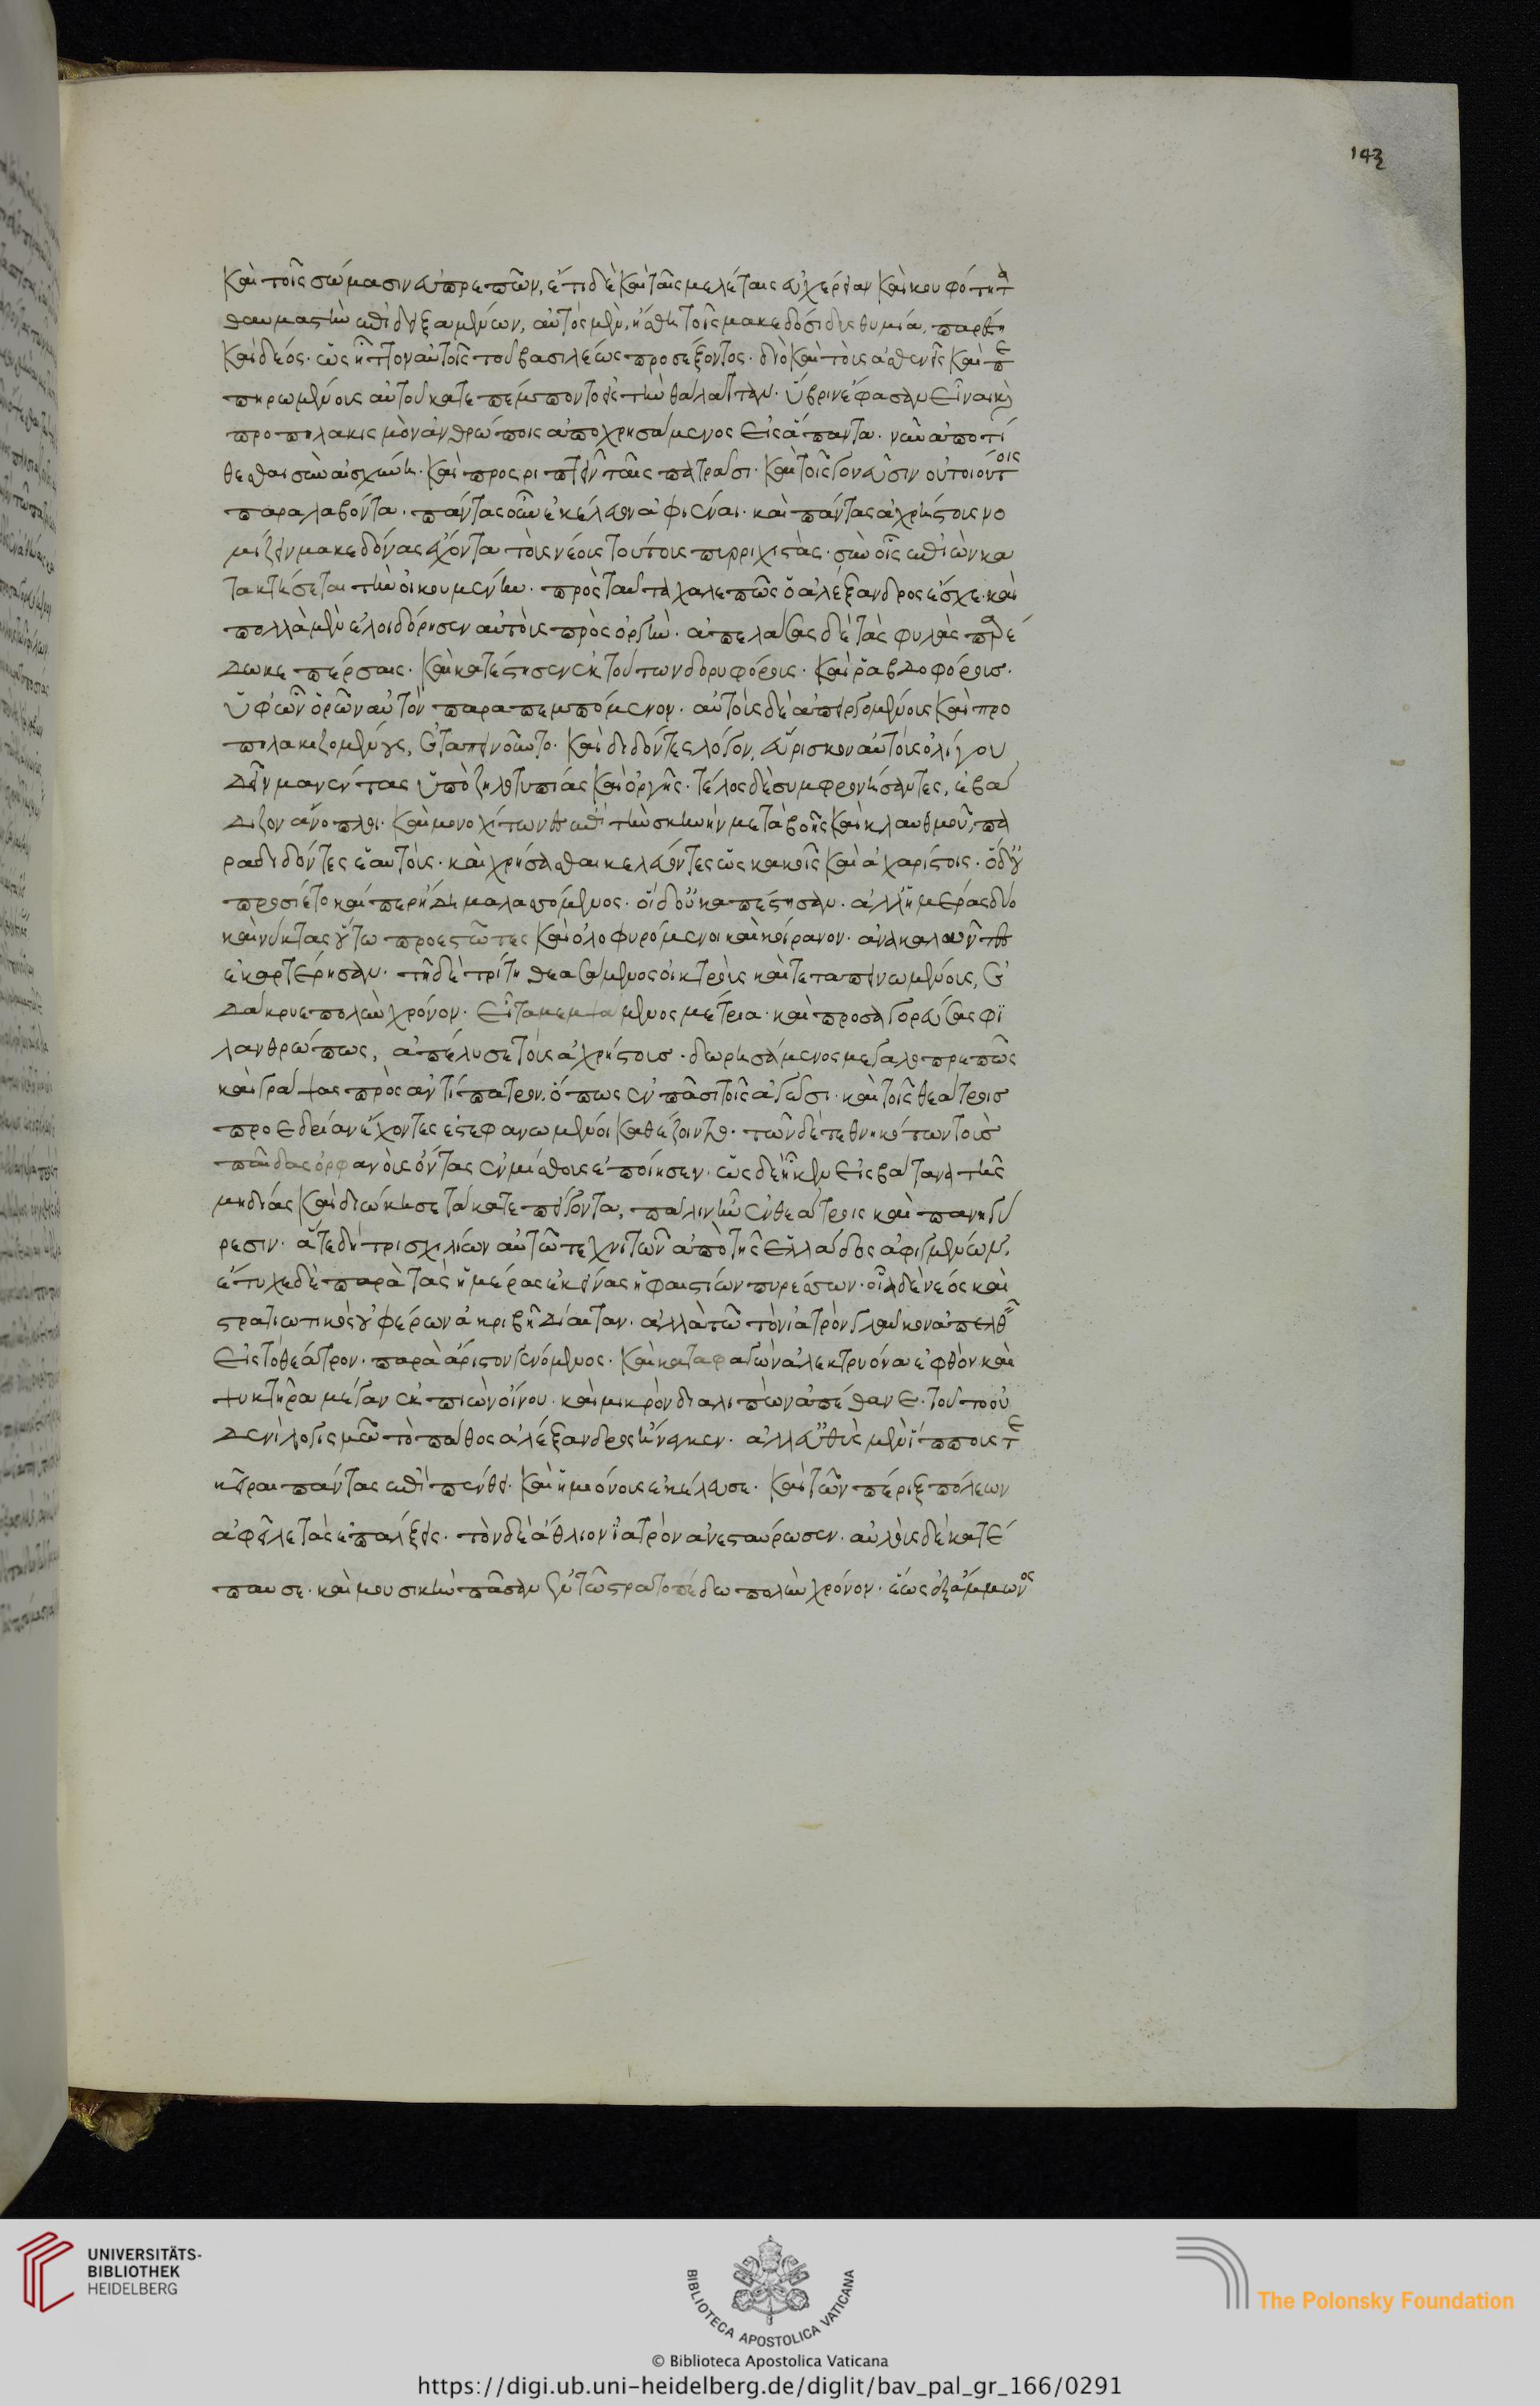 καὶ τοῖς σώμασιν εὐπρεπῶν, ἔτι δὲ καὶ ταῖς μελέταις εὐχέρειαν καὶ κουφότητα
θαυμαστὴν ἐπιδειξαμένων, αὐτὸς μὲν, ἥσθη τοῖς μακεδόσι δυσθυμία, παρέστη
καὶ δέος· ὡς ἧττον αὐτοῖς τοῦ βασιλέως προσέξοντος· διὸ καὶ τοὺς ἀσθενεῖς καὶ πε
πηρωμένους αὐτοῦ καταπέμποντος τὴν θάλατταν· ὕβριν ἔφασαν εἶναι καὶ
προπηλακισμὸν ἀνθρώποις ἀποχρησάμενος εἰς ἅπαντα· νῦν ἀποτί
θεσθαι σὺν αἰσχύνη· καὶ προσριπτεῖν ταῖς πατράσι· καὶ τοῖς γονεῦσιν οὐ τοιούτοις
παραλαβόντα· πάντας οὖν ἐκέλευον ἀφιέναι· καὶ πάντας ἀχρήστους νο
μίζειν μακεδόνας ἔχοντα τοὺς νέους τούτους πυρριχιστὰς· σὺν οἷς ἐπιὼν κα
τακτήσεται τὴν οἰκουμένην· πρὸς ταῦτα χαλεπῶς ὁ ἀλέξανδρος ἔσχε· καὶ
πολλὰ μὲν ἐλοιδόρησεν αὐτοὺς πρὸς ὀργὴν· ἀπελάσας δὲ τὰς φυλὰς παρέ
δωκε πέρσαις· καὶ κατέστησεν ἐκ τούτων δορυφόρους· καὶ ῥαβδοφόρους·
ὑφ' ὧν ὁρῶν αὐτὸν παραπεμπόμενον· αὐτοὺς δὲ ἀπειργομένους καὶ προ
πηλακιζομένους, ἐταπεινοῦντο· καὶ διδόντες λόγον, εὕρισκον αὑτοὺς ὀλίγου
δεῖν μανέντας ὑπὸ ζηλοτυπίας καὶ ὀργῆς· τέλος δὲ συμφρονήσαντες, ἐβά
διζον ἄνοπλοι· καὶ μονοχίτωνες ἐπὶ τὴν σκηνὴν μετὰ βοῆς καὶ κλαυθμοῦ, πα
ραδιδόντες ἑαυτοὺς· καὶ χρήσασθαι κελεύοντες ὡς κακοῖς καὶ ἀχαρίστοις· ὁ δ' οὐ
προσίετο καίπερ ἤδη μαλασσόμενος· οἱ δ' οὐκ ἀπέστησαν· ἀλλ' ἡμέρας δύο
καὶ νύκτας οὕτω προεστῶτες καὶ ὀλοφυρόμενοι καὶ κοίρανον· ἀνακαλοῦντες
ἐκαρτέρησαν· τῆ δὲ τρίτη θεασάμενος οἰκτροὺς καὶ τεταπεινωμένους, ἐ
δάκρυε πολὺν χρόνον· εἶτα μεμψάμενος μέτρια· καὶ προσαγορεύσας φι
λανθρώπως, ἀπέλυσε τοὺς ἀχρήστους· δωρησάμενος μεγαλοπρεπῶς
καὶ γράψας πρὸς ἀντίπατρον. ὅπως ἐν πᾶσι τοῖς ἀγῶσι· καὶ τοῖς θεάτροις
προεδρίαν ἔχοντες ἐστεφανωμένοι καθέζοιντο· τῶν δὲ τεθνηκότων τοὺς
παῖδας ὀρφανοὺς ὄντας ἐμμίσθους ἐποίησεν· ὡς δὲ ἧκεν εἰς βάτανα τῆς
μηδίας καὶ διώκησε τὰ κατεπείγοντα, πάλιν ἦν ἐν θεάτροις καὶ πανηγύ
ρεσιν· ἅτε δὴ τρισχιλίων αὐτῶ τεχνιτῶν ἀπὸ τῆς ἑλλάδος ἀφιγμένων·
ἔτυχε δὲ παρὰ τὰς ἡμέρας ἐκείνας ἡφαιστίων πυρέσσων· οἷα δὲ νέος καὶ
στρατιωτικὸς οὐ φέρων ἀκριβῆ δίαιταν· ἀλλὰ τῶ τὸν ἰατρὸν γλαῦκον ἀπελθεῖν
εἰς τὸ θέατρον· παρὰ ἄριστον γενόμενος· καὶ καταφαγὼν ἀλεκτρυόνα ἑφθὸν καὶ
ψυκτῆρα μέγαν ἐκπιὼν οἴνου· καὶ μικρὸν διαλιπὼν ἀπέθανε· τοῦτο οὐ
δενὶ λογισμῶ τὸ πάθος ἀλέξανδρος ἤνεγκεν· ἀλλ' εὐθὺς μὲν ἵππους τε
κεῖραι πάντας ἐπὶ πένθει· καὶ ἡμιόνους ἐκέλευσε· καὶ τῶν πέριξ πόλεων
ἀφεῖλε τὰς ἐπάλξεις· τὸν δὲ ἄθλιον ἰατρὸν ἀνεσταύρωσεν· αὐλοὺς δὲ κατέ
παυσε· καὶ μουσικὴν πᾶσαν ἐν τῶ στρατοπέδω πολὺν χρόνον· ἕως ἐξ ἄμμωνος
143
UNIVERSITÄTS-
BIBLIOTHEK
HEIDELBERG
BIBLIOTECA APOSTOLICA VATICANA
© Biblioteca Apostolica Vaticana
The Polonsky Foundation
https://digi.ub.uni-heidelberg.de/diglit/bav_pal_gr_166/0291